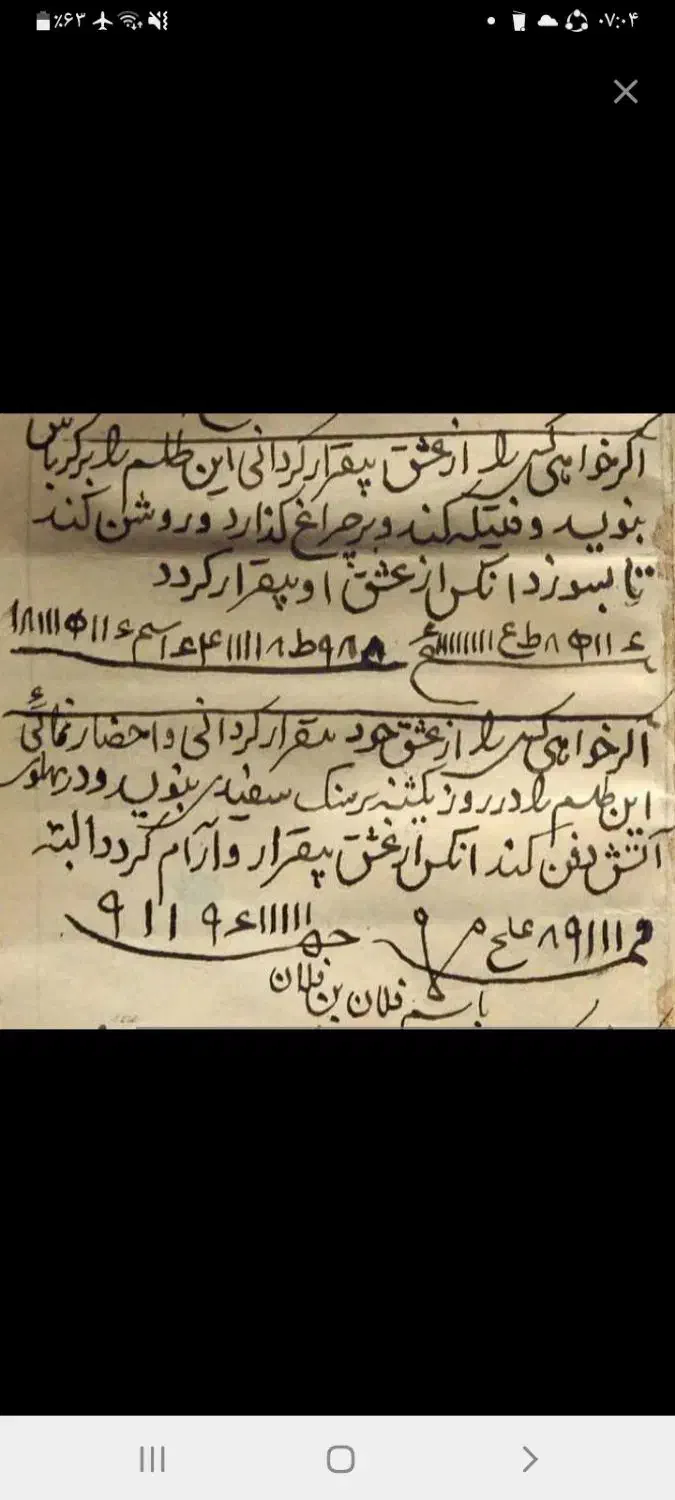 ٪۶۳
۰۷:۰۴
اکر خواهی کسی را از عشق بیقرار کردانی این طلسم را بر کرباس
بنویسد و فتیله کند و بر چراغ کذارد و روشن کند
تا بسوزد انکس از عشق او بیقرار کردد
اکر خواهی کسی را از عشق خود بیقرار کردانی و احضار نمائی
این طلسم را در روز یکشنبه بر سنک سفیدی بنویسد و در پهلوی
آتش دفن کند انکس از عشق بیقرار و آرام کردد البته
باسم فلان بن فلان